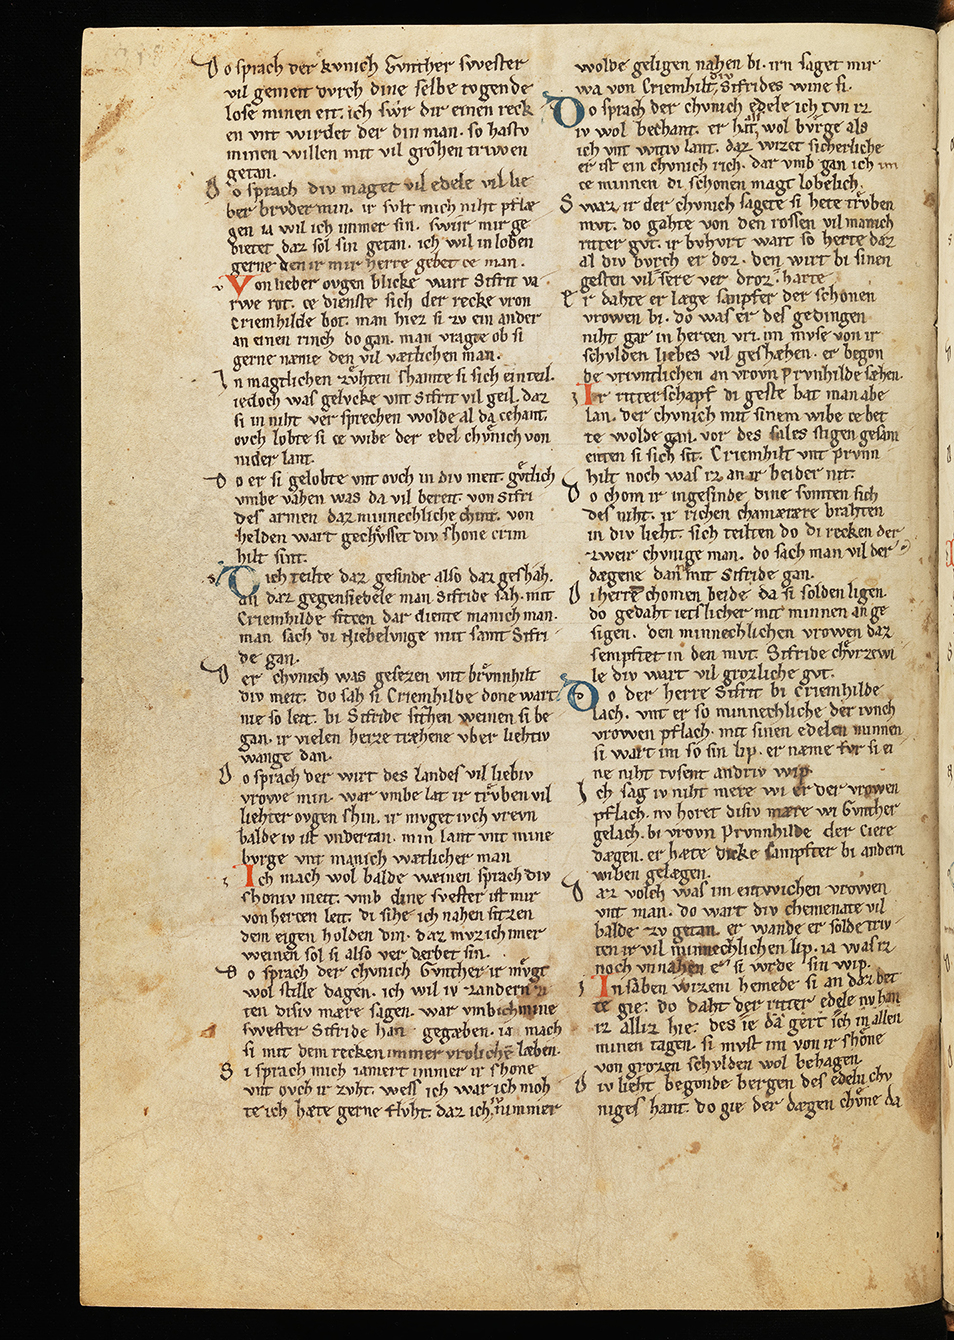 Do sprach der kvnich Gvnther swester
vil gemeit dvrch dine selbe tvgende
lose minen eit. ich swr dir einen reck
en vnt wirdet der din man. so hastv
minen willen mit vil grozen triwen
getan.
Do sprach div maget vil edele vil lie
ber brvder min. ir svlt mich niht vlæ
gen ia wil ich immer sin. swir mir ge
bietet daz sol sin getan. ich wil in loben
gerne den ir mir herre gebet ce man.
Von lieber ovgen blicke wart Sifrit va
rwe rot. ce dienste sich der recke vron
Criemhilde bot. man hiez si zv ein ander
an einen rinch do gan. man vragte ob si
gerne næme den vil vætlichen man.
In magtlichen zvhten shamte si sich ein teil.
iedoch was gelvcke vnt Sifrit vil heil. daz
si in niht ver sprechen wolde al da cehant.
ovch lobte si ce wibe der edel chvnich von
nider lant.
Do er si gelobte vnt ovch in div meit. gvtlich
vmbe vahen was da vil bereit. von Sifri
des armen daz minnechliche chint. von
helden wart gechvsset div shone crim
hilt sint.
Sich teilte daz gesinde also daz geshah.
an daz gegensiedele man Sifride sah. mit
Criemhilde sitcen dar diente manich man.
man sach di Niebelvnge mit samt Sifri
de gan.
Der chvnich was gesezen vnt brvnnhilt
div meit. do sah si Criemhilde done wart
nie so leit. bi Sifride sitcen weinen si be
gan. ir vielen heize træhene vber liehtiv
wange dan.
Do sprach der wirt des landes vil liebiv
vrowe min. war vmbe lat ir trvben vil
liehter ovgen shin. ir mvget ivch vrevn
balde iv ist vndertan. min lant vnt mine
bvrge vnt manich wætlicher man
Ich mach wol balde wæinen sprach div
shoniv meit. vmb dine swester ist mir
von hercen leit. di sihe ich nahen sitzen
dem eigen holden din. daz mvz ich imer
weinen sol si also ver derbet sin.
Do sprach der chvnich Gvnther ir mvgt
wol stille dagen. ich wil iv zandern ci
ten disiv mære sagen. war vmb ich mine
swester Sifride han gegæben. ia mach
si mit dem recken immer vroliche læben.
Si sprach mich iamert immer ir shone
vnt ovch ir zvht. wess ich war ich moh
te ich hæte gerne flvht. daz ich iv nimmer
wolde geligen nahen bi. irn saget mir
wa von Criemhilt Sifrides wine si.
Do sprach der chvnich edele ich tvn iz
iv wol bechant. er hat wol bvrge als
ich vnt witiv lant. daz wizet sicherliche
er ist ein chvnich rich. dar vmb gan ich im
ce minnen di schonen magt lobelich.
Swaz ir der chvnich sagete si hete trvben
mvt. do gahte von den rossen vil manich
ritter gvt. ir bvhvrt wart so herte daz
al div bvrch er doz. den wirt bi sinen
gesten vil sere ver droz. harte
Er dahte er læge sanpfter der schonen
vrowen bi. do was er des gedingen
niht gar in hercen vri. im mvse von ir
schvlden liebes vil geshæhen. er begon
de vrivntlichen an vrovn Prvnhilde sæhen.
Ir ritterschapf di geste bat man abe
lan. der chvnich mit sinem wibe ce bet
te wolde gan. vor des sales stigen gesam
enten si sich sit. Criemhilt vnt Prvnn
hilt noch was iz an ir beider nit.
Do chom ir ingesinde dine svmten sich
des niht. ir richen chamærære brahten
in div lieht. sich teilten do di recken der
zweir chvnige man. do sach man vil der
dægene dan mit Sifride gan.
Di herren chomen beide da si solden ligen.
do gedaht ietslicher mit minnen an ge
sigen. den minnechlichen vrowen daz
sempftet in den mvt. Sifride chvrzewi
le div wart vil grozliche gvt.
Do der herre Sifrit bi Criemhilde
lach. vnt er so minnechliche der ivnch
vrowen pflach. mit sinen edelen minnen
si wart im so sin lip. er næme fvr si ei
ne niht tvsent andriv wip
Ich sag iv niht mere wi er der vrowen
pflach. nv horet disiv mære wi Gvnther
gelach. bi vrovn Prvnnhilde der ciere
dægen. er hæte dicke sampfter bi andern
wiben gelægen.
Daz volch was im entwichen vrowen
vnt man. do wart div chemenate vil
balde zv getan. er wande er solde triv
ten ir vil minnechlichen lip. ia was iz
noch vnnahen e si wrde sin wip.
In saben wizem hemede si an daz bet
te gie. do daht der ritter edele nv han
iz alliz hie. des ie da gert ich in allen
minen tagen. si mvst im von ir shone
von grozen schvlden wol behagen.
Div lieht begonde bergen des edeln chv
niges hant. do gie der dægen chvne da